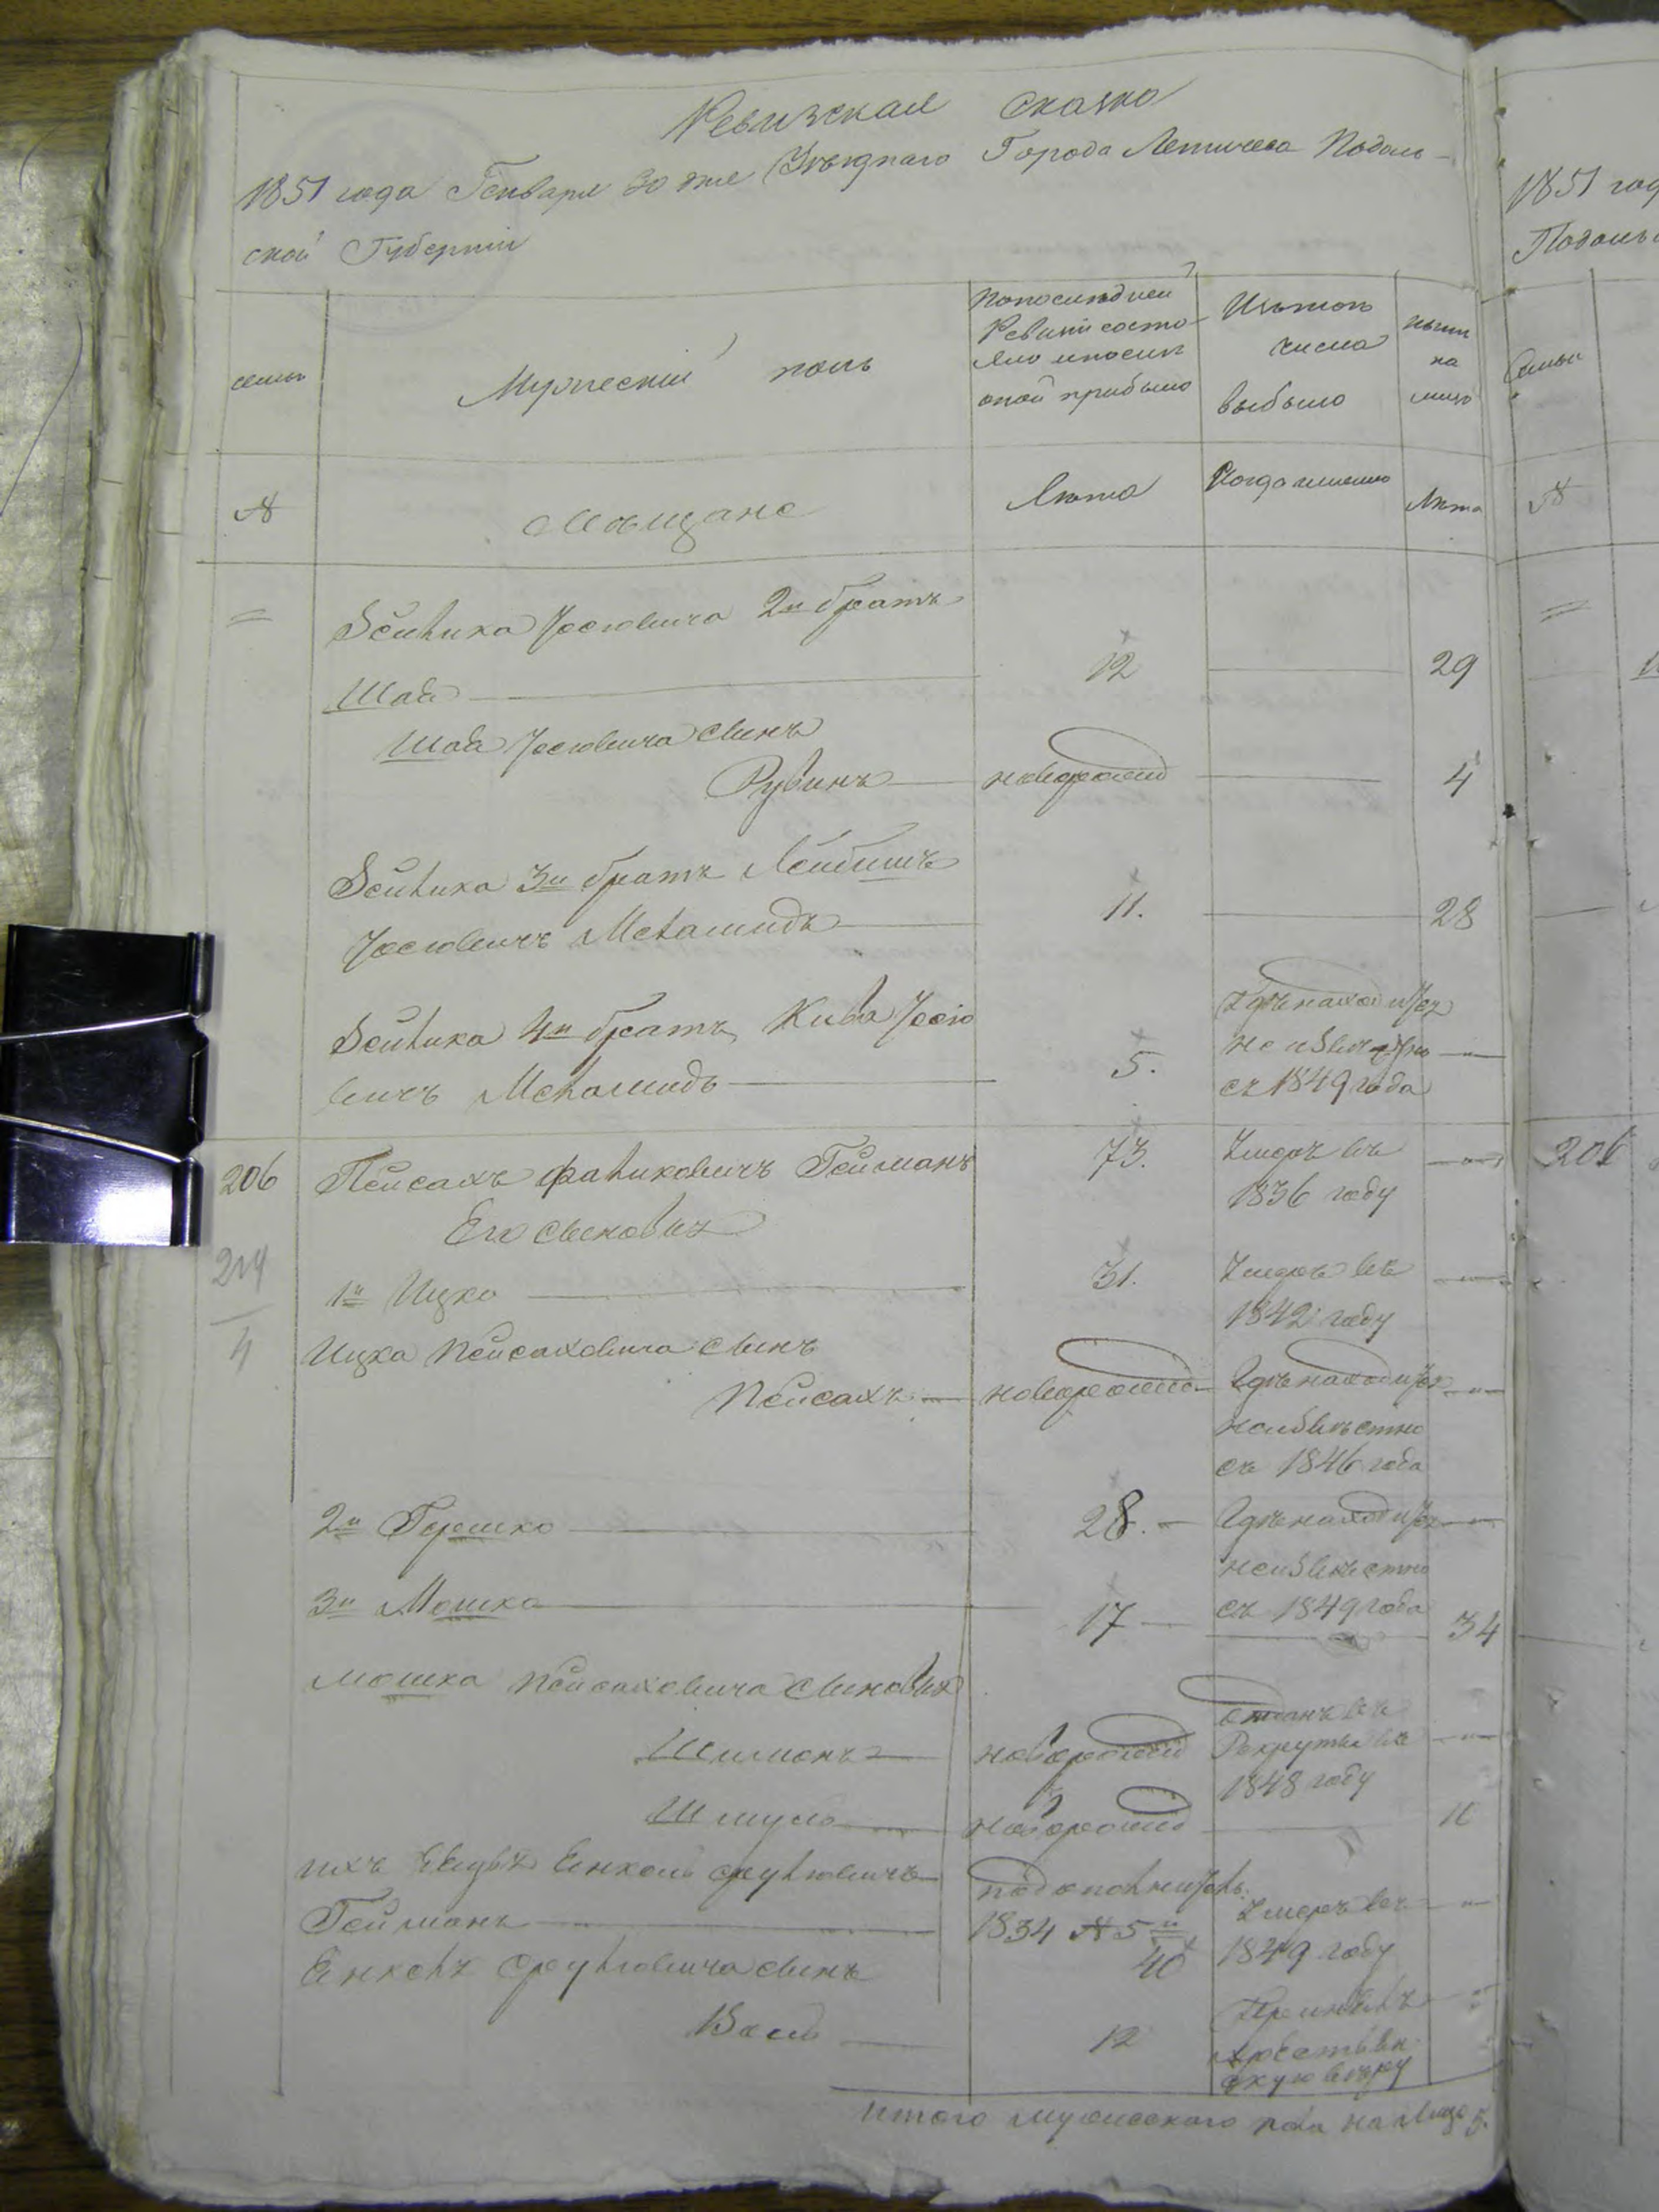 Ревизская сказка
1851 года Генваря 30 дня Уѣзднаго Города Летичева Подоль-
ской Губерніи
семьи
Мужескій полъ
Попослѣдней
Ревизіи состо-
яло ипослѣ
оной прибыло
Изътого
числа
выбыло
нынѣ
на
лицо
№
Мѣщане
Лѣта
Когда именно
Лѣта
Зейлика Іосіовича 2й братъ
Шая 12 29
Шая Іосіовича сынъ
Рувинъ новорожд 4
Зейлика 3й братъ Лейбишъ
Іосіовичъ Меламидъ 11. 28
Зейлика 4й братъ Кива Іосіо
вичъ Меламидъ 5.
Гдѣ находится
неизвѣстно
съ 1849 года
206 Пейсахъ Фаликовичъ Гейманъ 73. Умеръ въ
1836 году
Его сыновья
214
4
1й Ицко 31. Умеръ въ
1842 году
Ицка Пейсаховича сынъ
Пейсахъ новорожд Гдѣ находится
неизвѣстно
съ 1846 года
2й Гершко 28. Гдѣ находится
неизвѣстно
съ 1849 года
3й Мошко 17 34
Мошка Пейсаховича сыновья
Шимонъ новорожд отданъ въ
Рекруты въ
1848 году
Шмуль новорожд
ихъ Енкель Срулювичъ
Гейманъ
по дополнитель
1834 № 5й
40
Умеръ въ
1849 году
Енкель Срулювича сынъ
12 Принялъ
христіян
скую вѣру
итого мужескаго пола на лицо 5.
1851 год
Подоль
Семьи
№
206